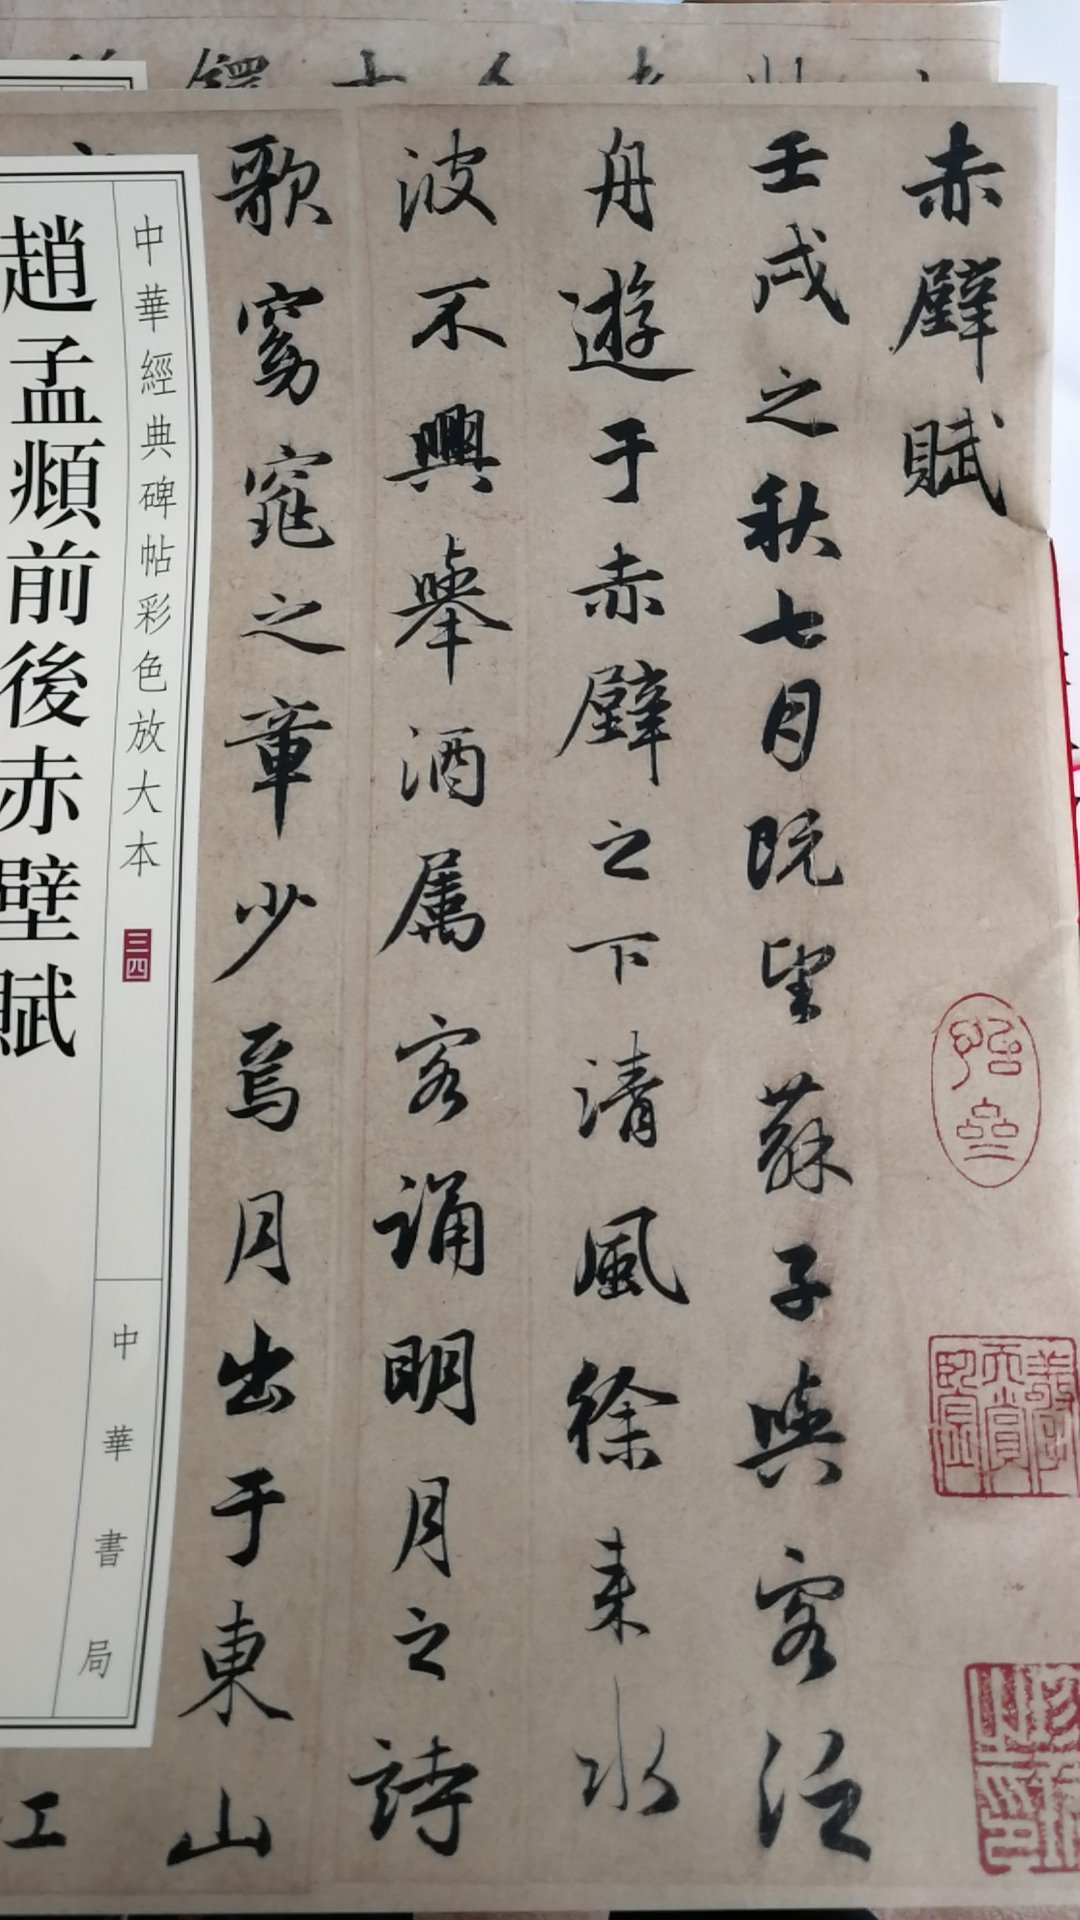 赤壁賦
壬戌之秋七月既望蘇子與客泛
舟遊于赤壁之下清風徐來水
波不興舉酒属客誦明月之詩
歌窈窕之章少焉月出于東山
中華經典碑帖彩色放大本
三四
中華書局
趙孟頫前後赤壁賦
江